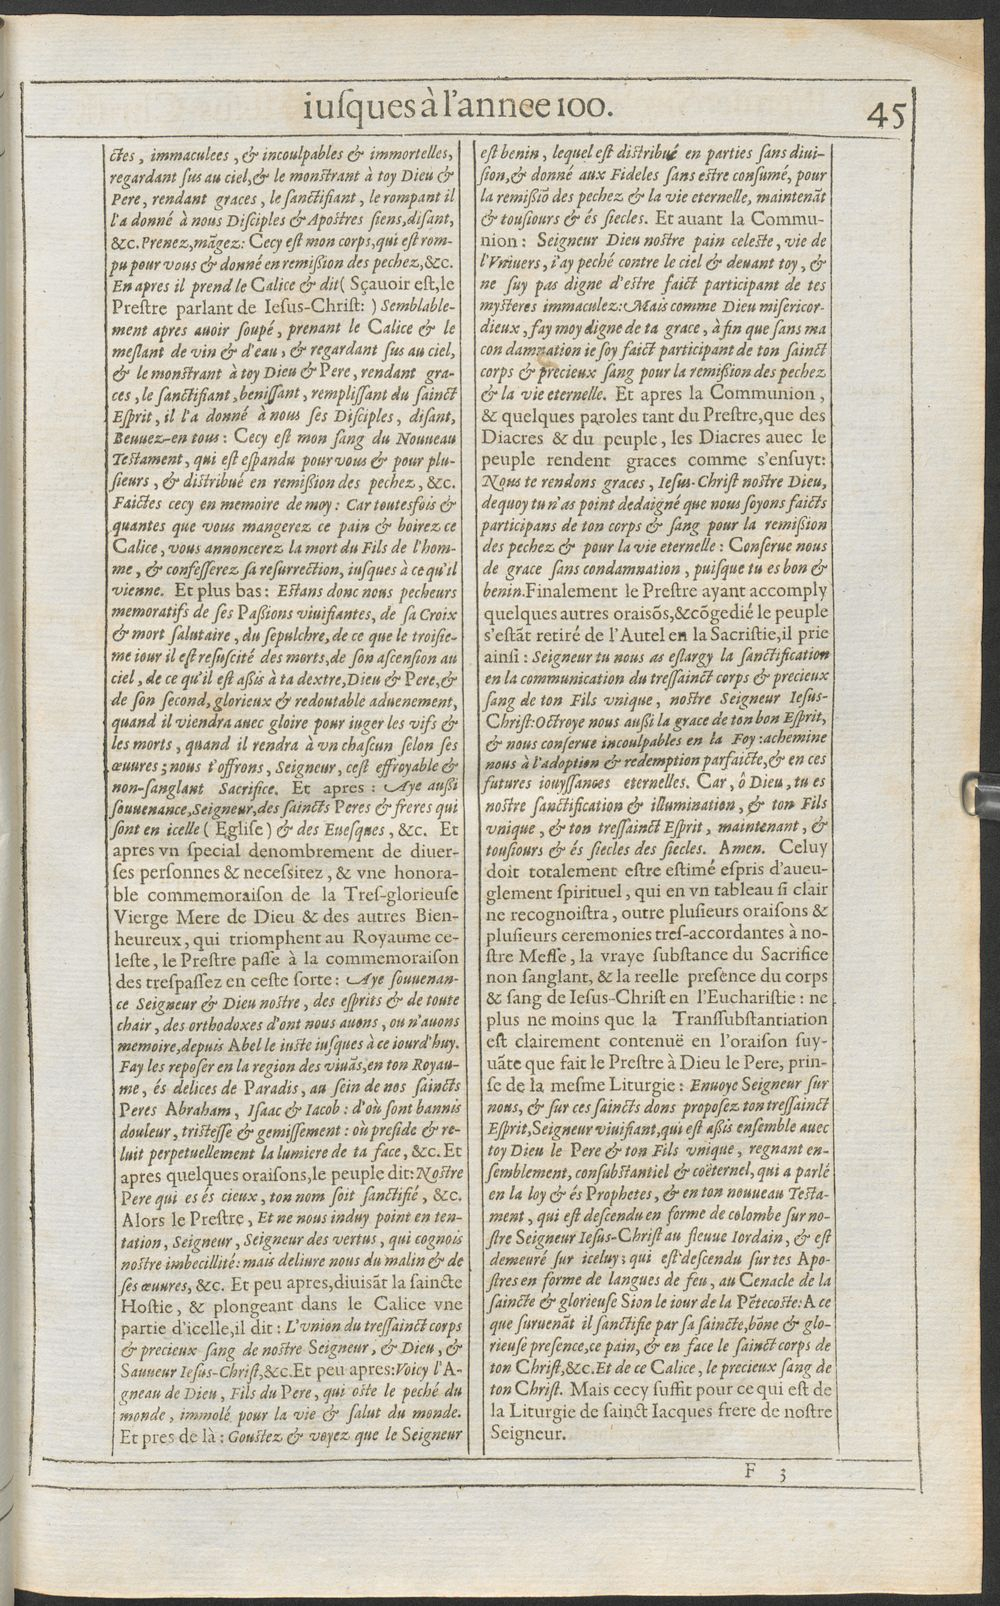 iusques à l'annee 100.
45
ctes, immaculees, & incoulpables & immortelles,
regardant sus au ciel, & le monstrant à toy Dieu &
Pere, rendant graces, le sanctifiant, le rompant il
l'a donné à nous Disciples & Apostres siens, disant,
&c. Prenez, mãgez: Cecy est mon corps, qui est rom-
pu pour vous & donné en remißion des pechez, &c.
En apres il prend le Calice & dit ( Sçauoir est, le
Prestre parlant de Iesus-Christ: ) Semblable-
ment apres auoir soupé, prenant le Calice & le
meslant de vin & d'eau, & regardant sus au ciel,
& le monstrant à toy Dieu & Pere, rendant gra-
ces, le sanctifiant, benissant, remplissant du sainct
Esprit, il l'a donné à nous ses Disciples, disant,
Beuuez-en tous: Cecy est mon sang du Nouueau
Testament, qui est espandu pour vous & pour plu-
sieurs, & distribué en remißion des pechez, &c.
Faictes cecy en memoire de moy: Car toutesfois &
quantes que vous mangerez ce pain & boirez ce
Calice, vous annoncerez la mort du Fils de l'hom-
me, & confesserez sa resurrection, iusques à ce qu'il
vienne. Et plus bas: Estans donc nous pecheurs
memoratifs de ses Paßions viuifiantes, de sa Croix
& mort salutaire, du sepulchre, de ce que le troisie-
me iour il est resuscité des morts, de son ascension au
ciel, de ce qu'il est aßis à ta dextre, Dieu & Pere, &
de son second, glorieux & redoutable aduenement,
quand il viendra auec gloire pour iuger les vifs &
les morts, quand il rendra à vn chascun selon ses
œuures; nous t'offrons, Seigneur, cest effroyable &
non-sanglant Sacrifice. Et apres: Aye außi
souuenance, Seigneur, des saincts Peres & freres qui
sont en icelle ( Eglise ) & des Euesques, &c. Et
apres vn special denombrement de diuer-
ses personnes & necessitez, & vne honora-
ble commemoraison de la Tres-glorieuse
Vierge Mere de Dieu & des autres Bien-
heureux, qui triomphent au Royaume ce-
leste, le Prestre passe à la commemoraison
des trespassez en ceste sorte: Aye souuenan-
ce Seigneur & Dieu nostre, des esprits & de toute
chair, des orthodoxes d'ont nous auons, ou n'auons
memoire, depuis Abel le iuste iusques à ce iourd'huy.
Fay les reposer en la region des viuãs, en ton Royau-
me, és delices de Paradis, au sein de nos saincts
Peres Abraham, Isaac & Iacob: d'où sont bannis
douleur, tristesse & gemissement: où preside & re-
luit perpetuellement la lumiere de ta face, &c. Et
apres quelques oraisons, le peuple dit: Nostre
Pere qui es és cieux, ton nom soit sanctifié, &c.
Alors le Prestre, Et ne nous induy point en ten-
tation, Seigneur, Seigneur des vertus, qui cognois
nostre imbecillité: mais deliure nous du malin & de
ses œuures, &c. Et peu apres, diuisãt la saincte
Hostie, & plongeant dans le Calice vne
partie d'icelle, il dit: L'vnion du tressainct corps
& precieux sang de nostre Seigneur, & Dieu, &
Sauueur Iesus-Christ, &c. Et peu apres: Voicy l'A-
gneau de Dieu, Fils du Pere, qui oste le peché du
monde, immolé pour la vie & salut du monde.
Et pres de là: Goustez & voyez que le Seigneur
est benin, lequel est distribué en parties sans diui-
sion, & donné aux Fideles sans estre consumé, pour
la remißiõ des pechez & la vie eternelle, maintenãt
& tousiours & és siecles. Et auant la Commu-
nion: Seigneur Dieu nostre pain celeste, vie de
l'Vniuers, i'ay peché contre le ciel & deuant toy, &
ne suy pas digne d'estre faict participant de tes
mysteres immaculez: Mais comme Dieu misericor-
dieux, fay moy digne de ta grace, à fin que sans ma
con damnation ie soy faict participant de ton sainct
corps & precieux sang pour la remißion des pechez
& la vie eternelle. Et apres la Communion,
& quelques paroles tant du Prestre, que des
Diacres & du peuple, les Diacres auec le
peuple rendent graces comme s'ensuyt:
Nous te rendons graces, Iesus-Christ nostre Dieu,
dequoy tu n'as point dedaigné que nous soyons faicts
participans de ton corps & sang pour la remißion
des pechez & pour la vie eternelle: Conserue nous
de grace sans condamnation, puisque tu es bon &
benin. Finalement le Prestre ayant accomply
quelques autres oraisõs, & cõgedié le peuple
s'estãt retiré de l'Autel en la Sacristie, il prie
ainsi: Seigneur tu nous as eslargy la sanctification
en la communication du tressainct corps & precieux
sang de ton Fils vnique, nostre Seigneur Iesus-
Christ: Octroye nous außi la grace de ton bon Esprit,
& nous conserue incoulpables en la Foy: achemine
nous à l'adoption & redemption parfaicte, & en ces
futures iouyssances eternelles. Car, ô Dieu, tu es
nostre sanctification & illumination, & ton Fils
vnique, & ton tressainct Esprit, maintenant, &
tousiours & és siecles des siecles. Amen. Celuy
doit totalement estre estimé espris d'aueu-
glement spirituel, qui en vn tableau si clair
ne recognoistra, outre plusieurs oraisons &
plusieurs ceremonies tres-accordantes à no-
stre Messe, la vraye substance du Sacrifice
non sanglant, & la reelle presence du corps
& sang de Iesus-Christ en l'Eucharistie: ne
plus ne moins que la Transsubstantiation
est clairement contenuë en l'oraison suy-
uãte que fait le Prestre à Dieu le Pere, prin-
se de la mesme Liturgie: Enuoye Seigneur sur
nous, & sur ces saincts dons proposez ton tressainct
Esprit, Seigneur viuifiant, qui est aßis ensemble auec
toy Dieu le Pere & ton Fils vnique, regnant en-
semblement, consubstantiel & coëternel, qui a parlé
en la loy & és Prophetes, & en ton nouueau Testa-
ment, qui est descendu en forme de colombe sur no-
stre Seigneur Iesus-Christ au fleuue Iordain, & est
demeuré sur iceluy; qui est descendu sur tes Apo-
stres en forme de langues de feu, au Cenacle de la
saincte & glorieuse Sion le iour de la Pẽtecoste: A ce
que suruenãt il sanctifie par sa saincte, bõne & glo-
rieuse presence, ce pain, & en face le sainct corps de
ton Christ, &c. Et de ce Calice, le precieux sang de
ton Christ. Mais cecy suffit pour ce qui est de
la Liturgie de sainct Iacques frere de nostre
Seigneur.
F 3